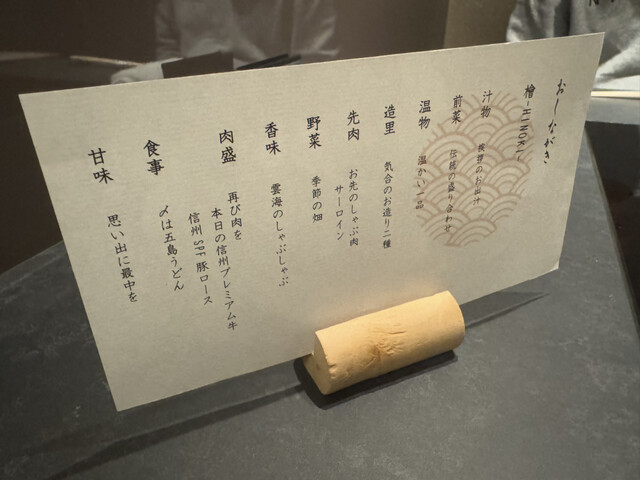 おしながき
檜-HINOKI-
汁物 挨拶のお出汁
前菜 伝統の盛り合わせ
温物 温かい一品
造里 気合のお造り二種
先肉 お先のしゃぶ肉
サーロイン
野菜 季節の畑
香味 雲海のしゃぶしゃぶ
肉盛 再び肉を
本日の信州プレミアム牛
信州SPF豚ロース
食事 〆は五島うどん
甘味 思い出に最中を